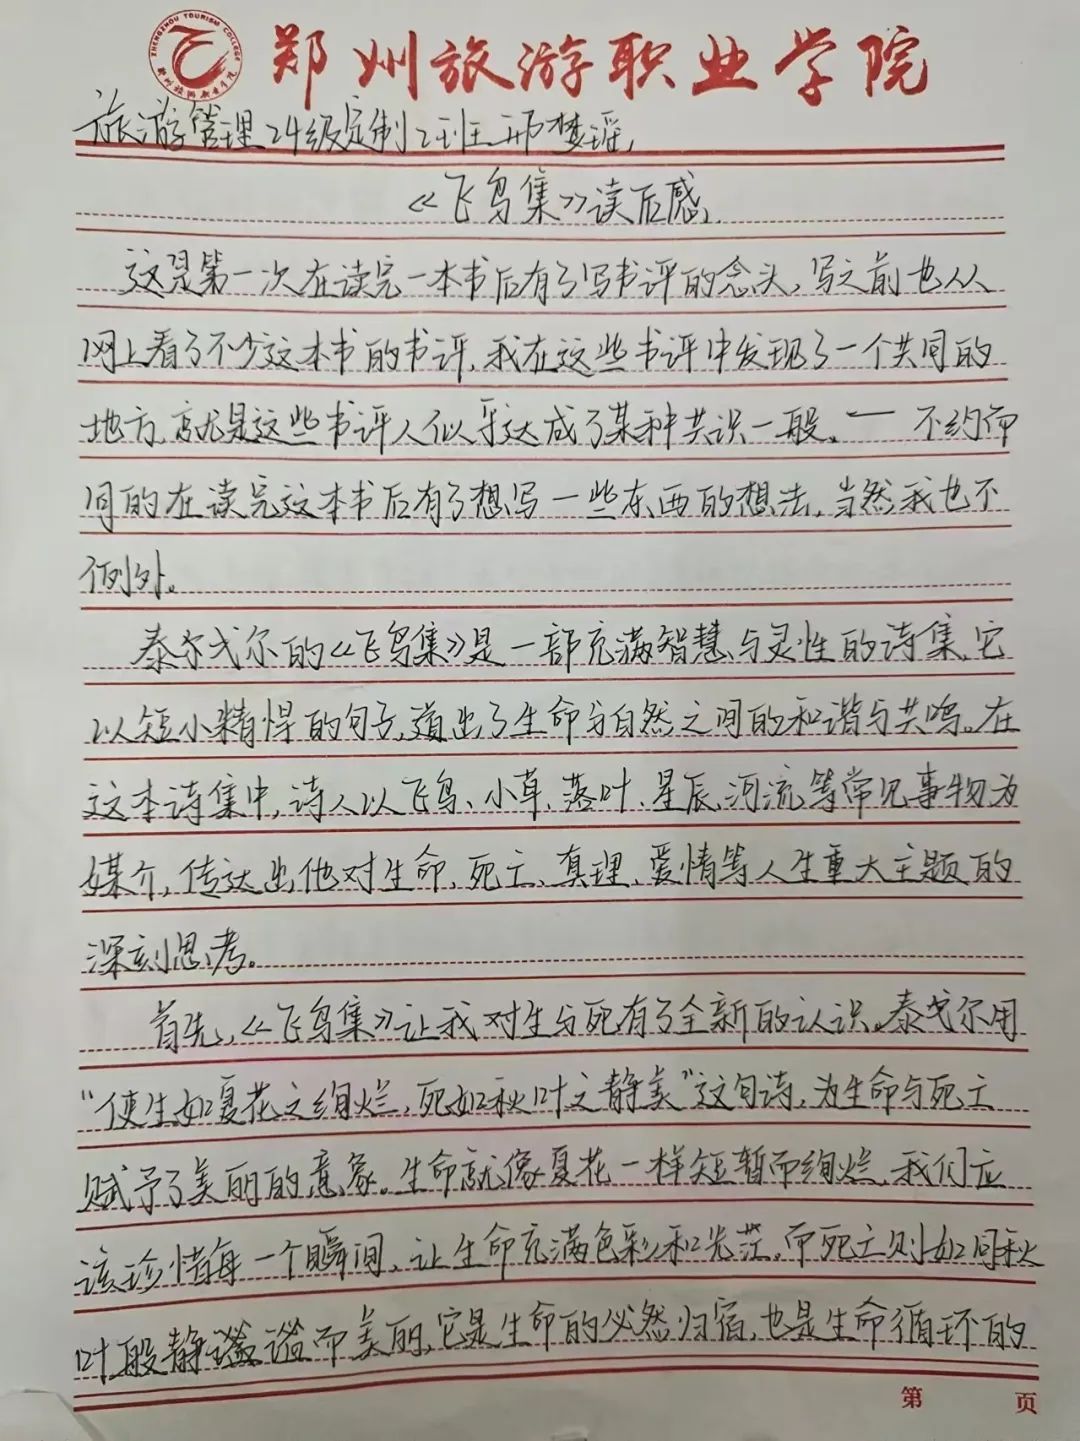 ZHENGZHOU TOURISM COLLEGE
郑州旅游职业学院
郑州旅游职业学院
旅游管理24级定制2班 邢梦瑶
《飞鸟集》读后感
这是第一次在读完一本书后有了写书评的念头,写之前也从
网上看了不少这本书的书评,我在这些书评中发现了一个共同的
地方,就是这些书评人似乎达成了某种共识一般。— 不约而
同的在读完这本书后有了想写一些东西的想法,当然我也不
例外。
泰尔戈尔的《飞鸟集》是一部充满智慧与灵性的诗集,它
以短小精悍的句子,道出了生命与自然之间的和谐与共鸣。在
这本诗集中,诗人以飞鸟、小草、落叶、星辰、河流等常见事物为
媒介,传达出他对生命、死亡、真理、爱情等人生重大主题的
深刻思考。
首先,《飞鸟集》让我对生与死有了全新的认识。泰戈尔用
“使生如夏花之绚烂,死如秋叶之静美”这句诗,为生命与死亡
赋予了美丽的意象。生命就像夏花一样短暂而绚烂,我们应
该珍惜每一个瞬间,让生命充满色彩和光茫。而死亡则如同秋
叶般静谧谧而美丽,它是生命的必然归宿,也是生命循环的
第 页